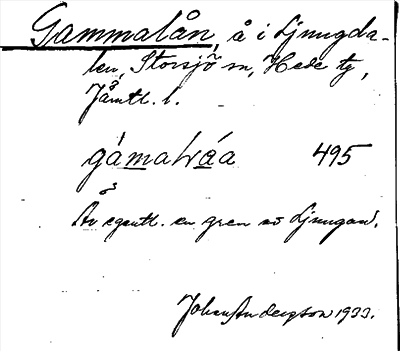 Gammalån, å i Ljungda-
len, Storsjö sn, Hede tg,
Jämtl. l.
gámalråa 495
Är egentl. en gren av Ljungan.
Johan Anderson 1933.